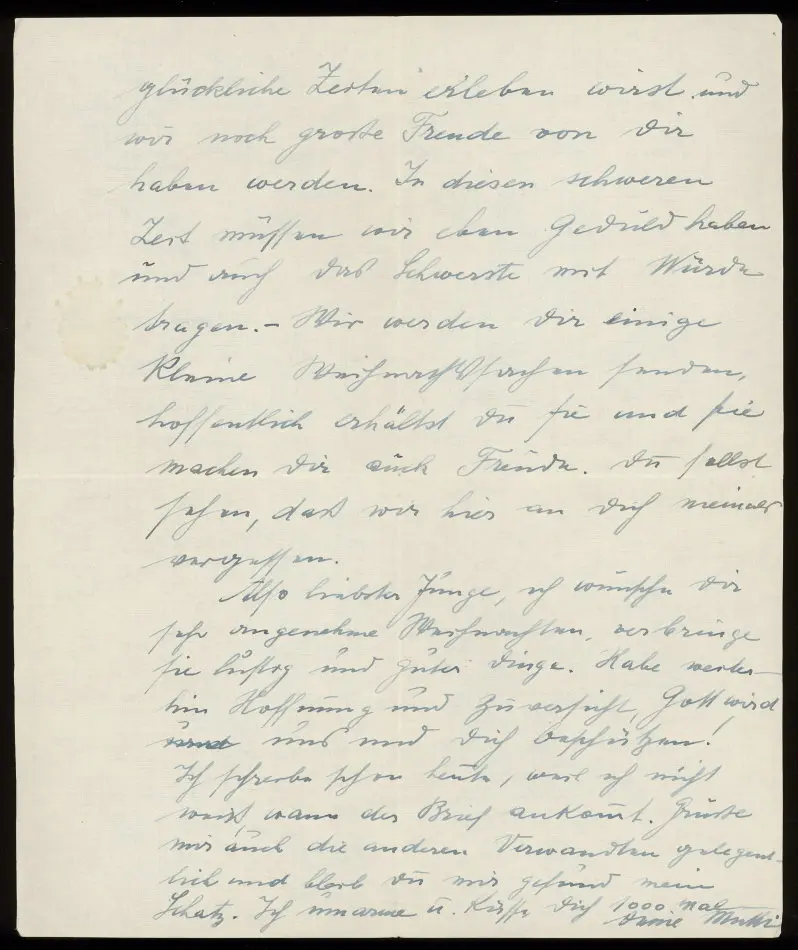 glückliche Zeiten erleben wirst und
wir noch große Freude von Dir
haben werden. In diesen schweren
Zeit müssen wir eben Geduld haben
und auch das Schwerste mit Würde
tragen.- Wir werden Dir einige
kleine Weihnachtssachen senden,
hoffentlich erhältst Du sie und sie
machen Dir auch Freude. Du sollst
sehen, daß wir hier an Dich niemals
vergessen.
Also liebster Junge, ich wünsche Dir
sehr angenehme Weihnachten, verbringe
sie lustig und guter Dinge. Habe weiter-
hin Hoffnung und Zuversicht, Gott wird
uns und Dich beschützen!
Ich schreibe schon heute, weil ich nicht
weiß wann der Brief ankommt. Grüße
mir auch die anderen Verwandten gelegent-
lich und bleib Du mir gesund mein
Schatz. Ich umarme u. küsse Dich 1000 mal
Deine Mutti